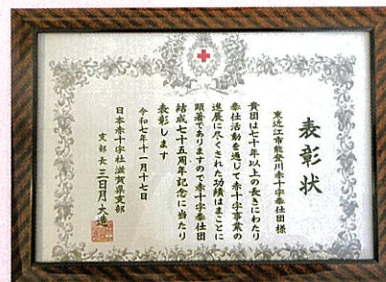 表彰状
東近江市能登川赤十字奉仕団様
貴団は七十年以上の長きにわたり
奉仕活動を通じて赤十字事業の
進展に尽くされた功績はまことに
顕著でありますので赤十字奉仕団
結成七十五周年記念に当たり
表彰します
令和七年十一月十七日
日本赤十字社滋賀県支部
支部長 三日月大造